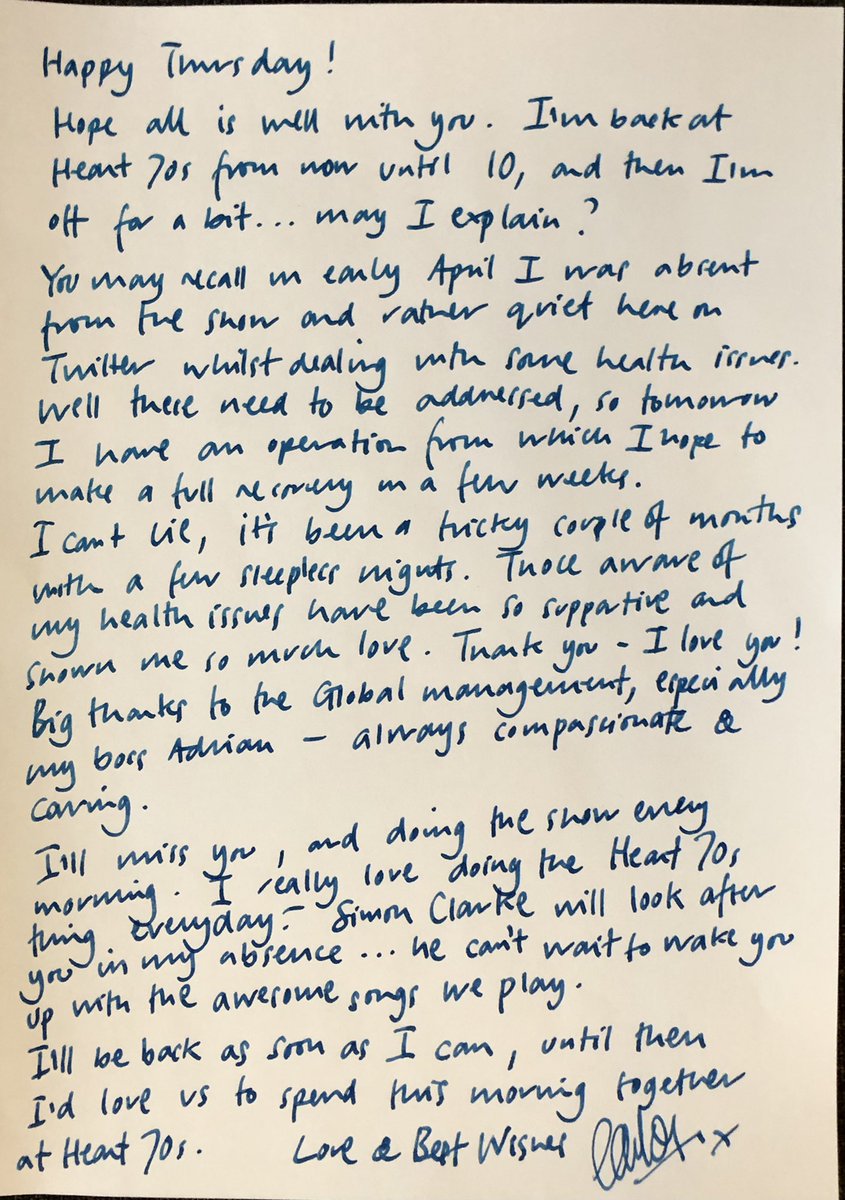 Happy Thursday!
Hope all is well with you. I'm back at
Heart 70s from now until 10, and then I'm
off for a bit... may I explain?
You may recall in early April I was absent
from the show and rather quiet here on
Twitter whilst dealing with some health issues.
Well these need to be addressed, so tomorrow
I have an operation from which I hope to
make a full recovery in a few weeks.
I can't lie, it's been a tricky couple of months
with a few sleepless nights. Those aware of
my health issues have been so supportive and
shown me so much love. Thank you - I love you!
Big thanks to the Global management, especially
my boss Adrian - always compassionate &
caring.
I'll miss you, and doing the show every
morning. I really love doing the Heart 70s
thing everyday! - Simon Clarke will look after
you in my absence... he can't wait to wake you
up with the awesome songs we play.
I'll be back as soon as I can, until then
I'd love us to spend this morning together
at Heart 70s. Love & Best Wishes Carlos x